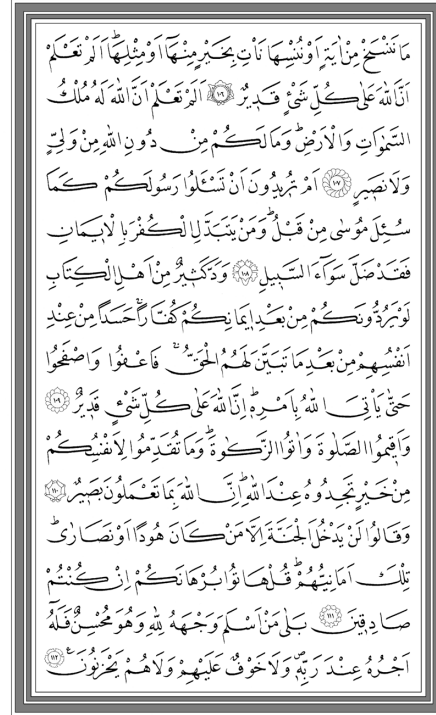 مَا نَنْسَخْ مِنْ اٰيَةٍ اَوْ نُنْسِهَا نَأْتِ بِخَيْرٍ مِنْهَٓا اَوْ مِثْلِهَاۜ اَلَمْ تَعْلَمْ
اَنَّ اللّٰهَ عَلٰى كُلِّ شَيْءٍ قَد۪يرٌ ﴿١٠٦﴾ اَلَمْ تَعْلَمْ اَنَّ اللّٰهَ لَهُ مُلْكُ
السَّمٰوَاتِ وَالْاَرْضِۜ وَمَا لَكُمْ مِنْ دُونِ اللّٰهِ مِنْ وَلِيٍّ
وَلَا نَص۪يرٍ ﴿١٠٧﴾ اَمْ تُر۪يدُونَ اَنْ تَسْـَٔلُوا رَسُولَكُمْ كَمَا
سُئِلَ مُوسٰى مِنْ قَبْلُۜ وَمَنْ يَتَبَدَّلِ الْكُفْرَ بِالْا۪يمَانِ
فَقَدْ ضَلَّ سَوَٓاءَ السَّب۪يلِ ﴿١٠٨﴾ وَدَّ كَث۪يرٌ مِنْ اَهْلِ الْكِتَابِ
لَوْ يَرُدُّونَكُمْ مِنْ بَعْدِ ا۪يمَانِكُمْ كُفَّارًاۚ حَسَدًا مِنْ عِنْدِ
اَنْفُسِهِمْ مِنْ بَعْدِ مَا تَبَيَّنَ لَهُمُ الْحَقُّۚ فَاعْفُوا وَاصْفَحُوا
حَتّٰى يَأْتِيَ اللّٰهُ بِاَمْرِه۪ۜ اِنَّ اللّٰهَ عَلٰى كُلِّ شَيْءٍ قَد۪يرٌ ﴿١٠٩﴾
وَاَق۪يمُوا الصَّلٰوةَ وَاٰتُوا الزَّكٰوةَۜ وَمَا تُقَدِّمُوا لِاَنْفُسِكُمْ
مِنْ خَيْرٍ تَجِدُوهُ عِنْدَ اللّٰهِۜ اِنَّ اللّٰهَ بِمَا تَعْمَلُونَ بَص۪يرٌ ﴿١١٠﴾
وَقَالُوا لَنْ يَدْخُلَ الْجَنَّةَ اِلَّا مَنْ كَانَ هُودًا اَوْ نَصَارٰىۜ
تِلْكَ اَمَانِيُّهُمْۜ قُلْ هَاتُوا بُرْهَانَكُمْ اِنْ كُنْتُمْ
صَادِق۪ينَ ﴿١١١﴾ بَلٰى مَنْ اَسْلَمَ وَجْهَهُ لِلّٰهِ وَهُوَ مُحْسِنٌ فَلَهُٓ
اَجْرُهُ عِنْدَ رَبِّه۪ۖ وَلَا خَوْفٌ عَلَيْهِمْ وَلَا هُمْ يَحْزَنُونَ۟ ﴿١١٢﴾